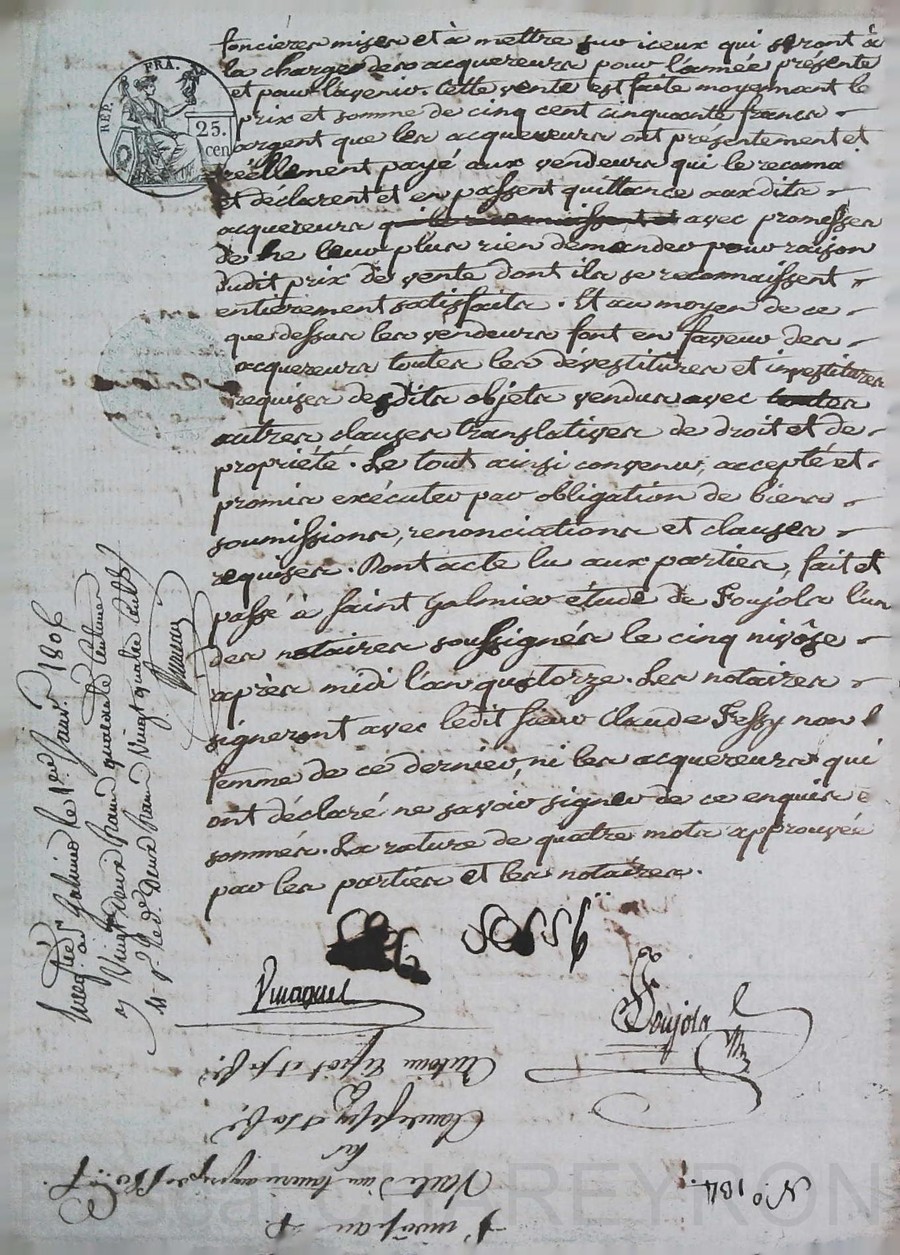 foncieres mises et à mettre sur iceux qui seront à
la charge des acquereurs pour l'année présente
et pour l'avenir. Cette vente est faite moyennant le
prix et somme de cinq cent cinquante francs
argent que les acquereurs ont présentement et
réellement payé aux vendeurs qui le reconna
et déclarent et en passent quittance auxdits
acquereurs qui le reconnaissent et avec promesse
de ne leur plus rien demander pour raison
dudit prix de vente dont ils se reconnaissent
entièrement satisfaits. Et au moyen de ce
que dessus les vendeurs font en faveur des
acquereurs toutes les dévestitures et investitures
requises desdits objets vendus avec toutes
autres clauses translatives de droit et de
propriété. Le tout ainsi convenu, accepté et
promis exécuter par obligation de biens
soumissions, renonciations et clauses
requises. Dont acte lu aux parties, fait et
passé à Saint Galmier étude de Foujols l'un
des notaires soussignés le cinq nivôse
après midi l'an quatorze. Les notaires
signeront avec ledit sieur Claude Fessy non l
femme de ce dernier, ni les acquereurs qui
ont déclaré ne savoir signer de ce enquis e
sommés. La rature de quatre mots approuvée
par les parties et les notaires.
REP. FRA.
25.
cen
Galmier le 1er Janv. 1806
Foujols
Claude Fessy et sa
Vente d'un
N.o 134.
Pascal CHAREYRON